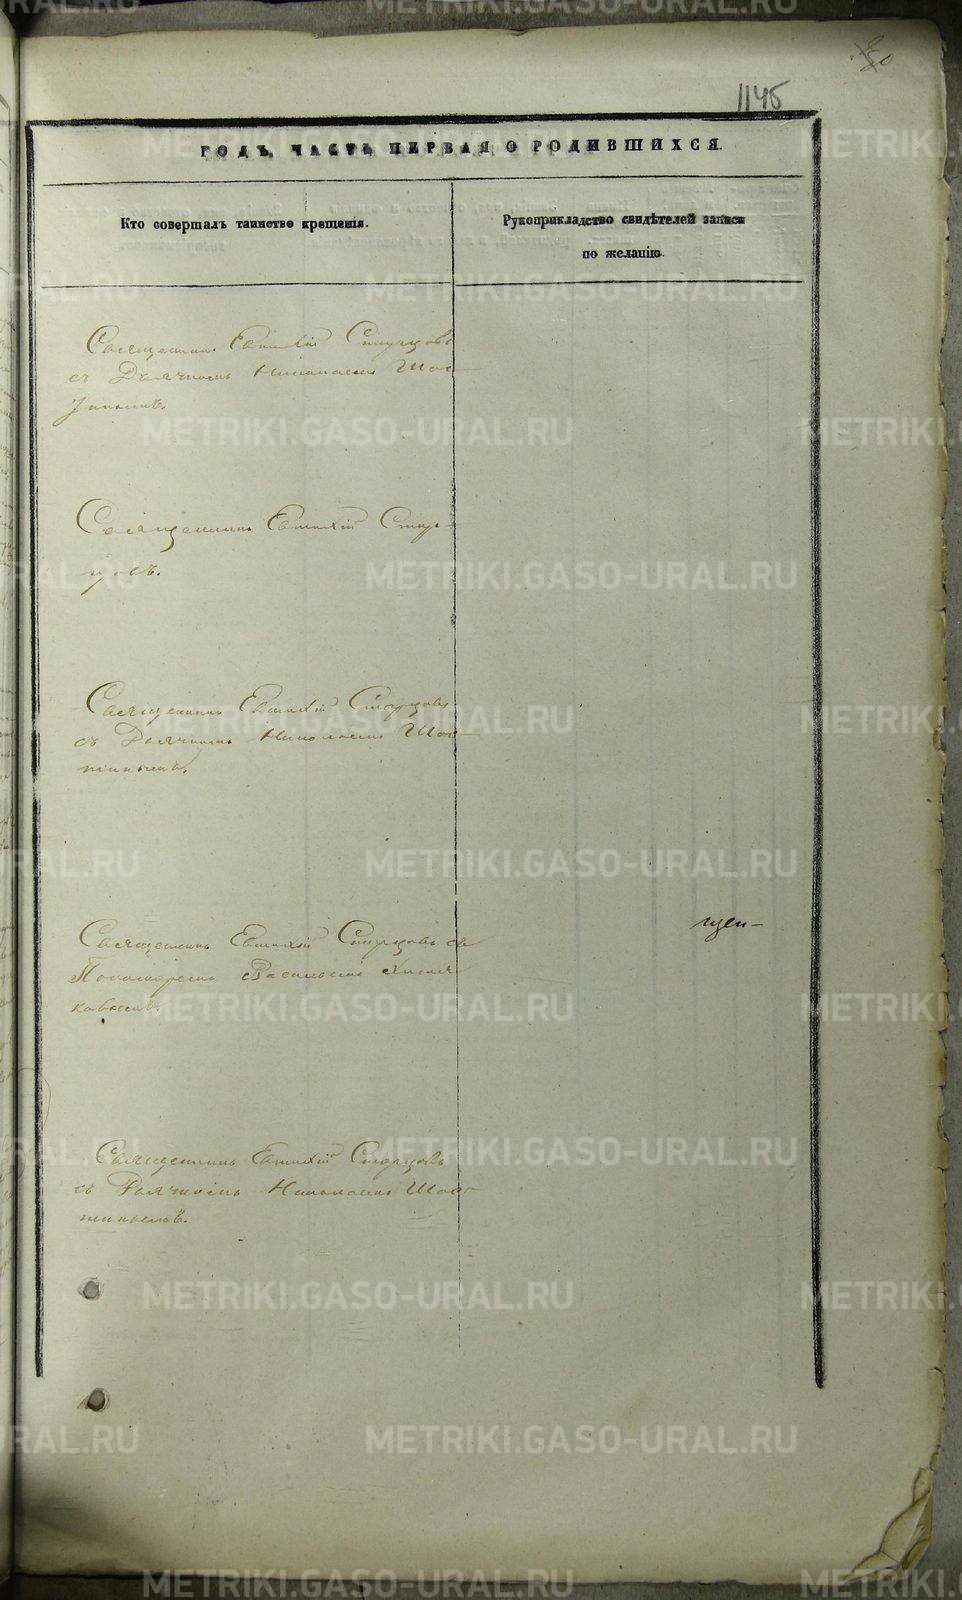 50
1145
ГОДЪ, ЧАСТЬ ПЕРВАЯ, О РОДИВШИХСЯ.
Кто совершалъ таинство крещенія.
Рукоприкладство свидѣтелей записи
по желанію.
Священникъ Евтихій Старцовъ
съ Дьячкомъ Николаемъ Шос-
тинымъ.
Священникъ Евтихій Стар-
цовъ.
Священникъ Евтихій Старцовъ
съ Дьячкомъ Николаемъ Шос-
тинымъ.
Священникъ Евтихій Старцовъ съ
Пономаремъ Василіемъ
ковымъ.
щен-
Священникъ Евтихій Старцовъ
съ Дьячкомъ Николаемъ Шос-
тинымъ.
METRIKI.GASO-URAL.RU